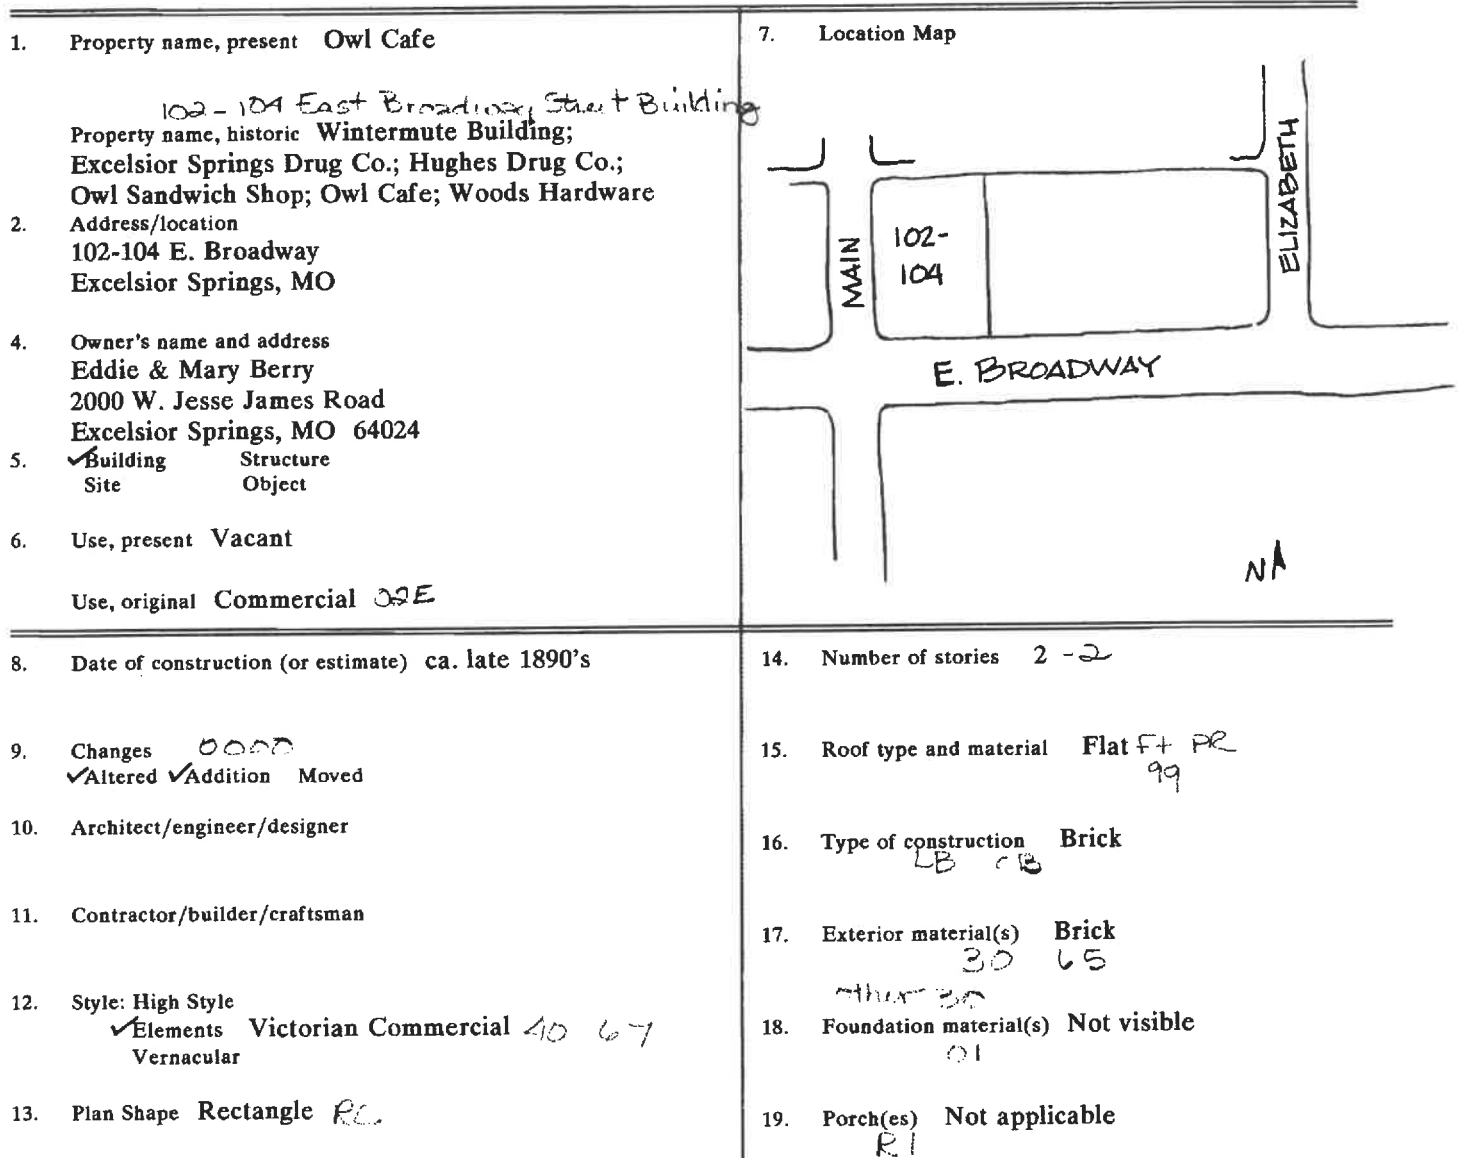 1. Property name, present Owl Cafe
102-104 East Broadway Street Building
Property name, historic Wintermute Building;
Excelsior Springs Drug Co.; Hughes Drug Co.;
Owl Sandwich Shop; Owl Cafe; Woods Hardware
2. Address/location
102-104 E. Broadway
Excelsior Springs, MO
4. Owner's name and address
Eddie & Mary Berry
2000 W. Jesse James Road
Excelsior Springs, MO 64024
5. ✓Building Structure
Site Object
6. Use, present Vacant
Use, original Commercial 02E
7. Location Map
MAIN
102-
104
ELIZABETH
E. BROADWAY
N
8. Date of construction (or estimate) ca. late 1890's
9. Changes 0000
✓Altered ✓Addition Moved
10. Architect/engineer/designer
11. Contractor/builder/craftsman
12. Style: High Style
✓Elements Victorian Commercial 40 67
Vernacular
13. Plan Shape Rectangle RC.
14. Number of stories 2 - 2
15. Roof type and material Flat Ft PR
99
16. Type of construction Brick
LB CB
17. Exterior material(s) Brick
30 65
other 30
18. Foundation material(s) Not visible
01
19. Porch(es) Not applicable
R1